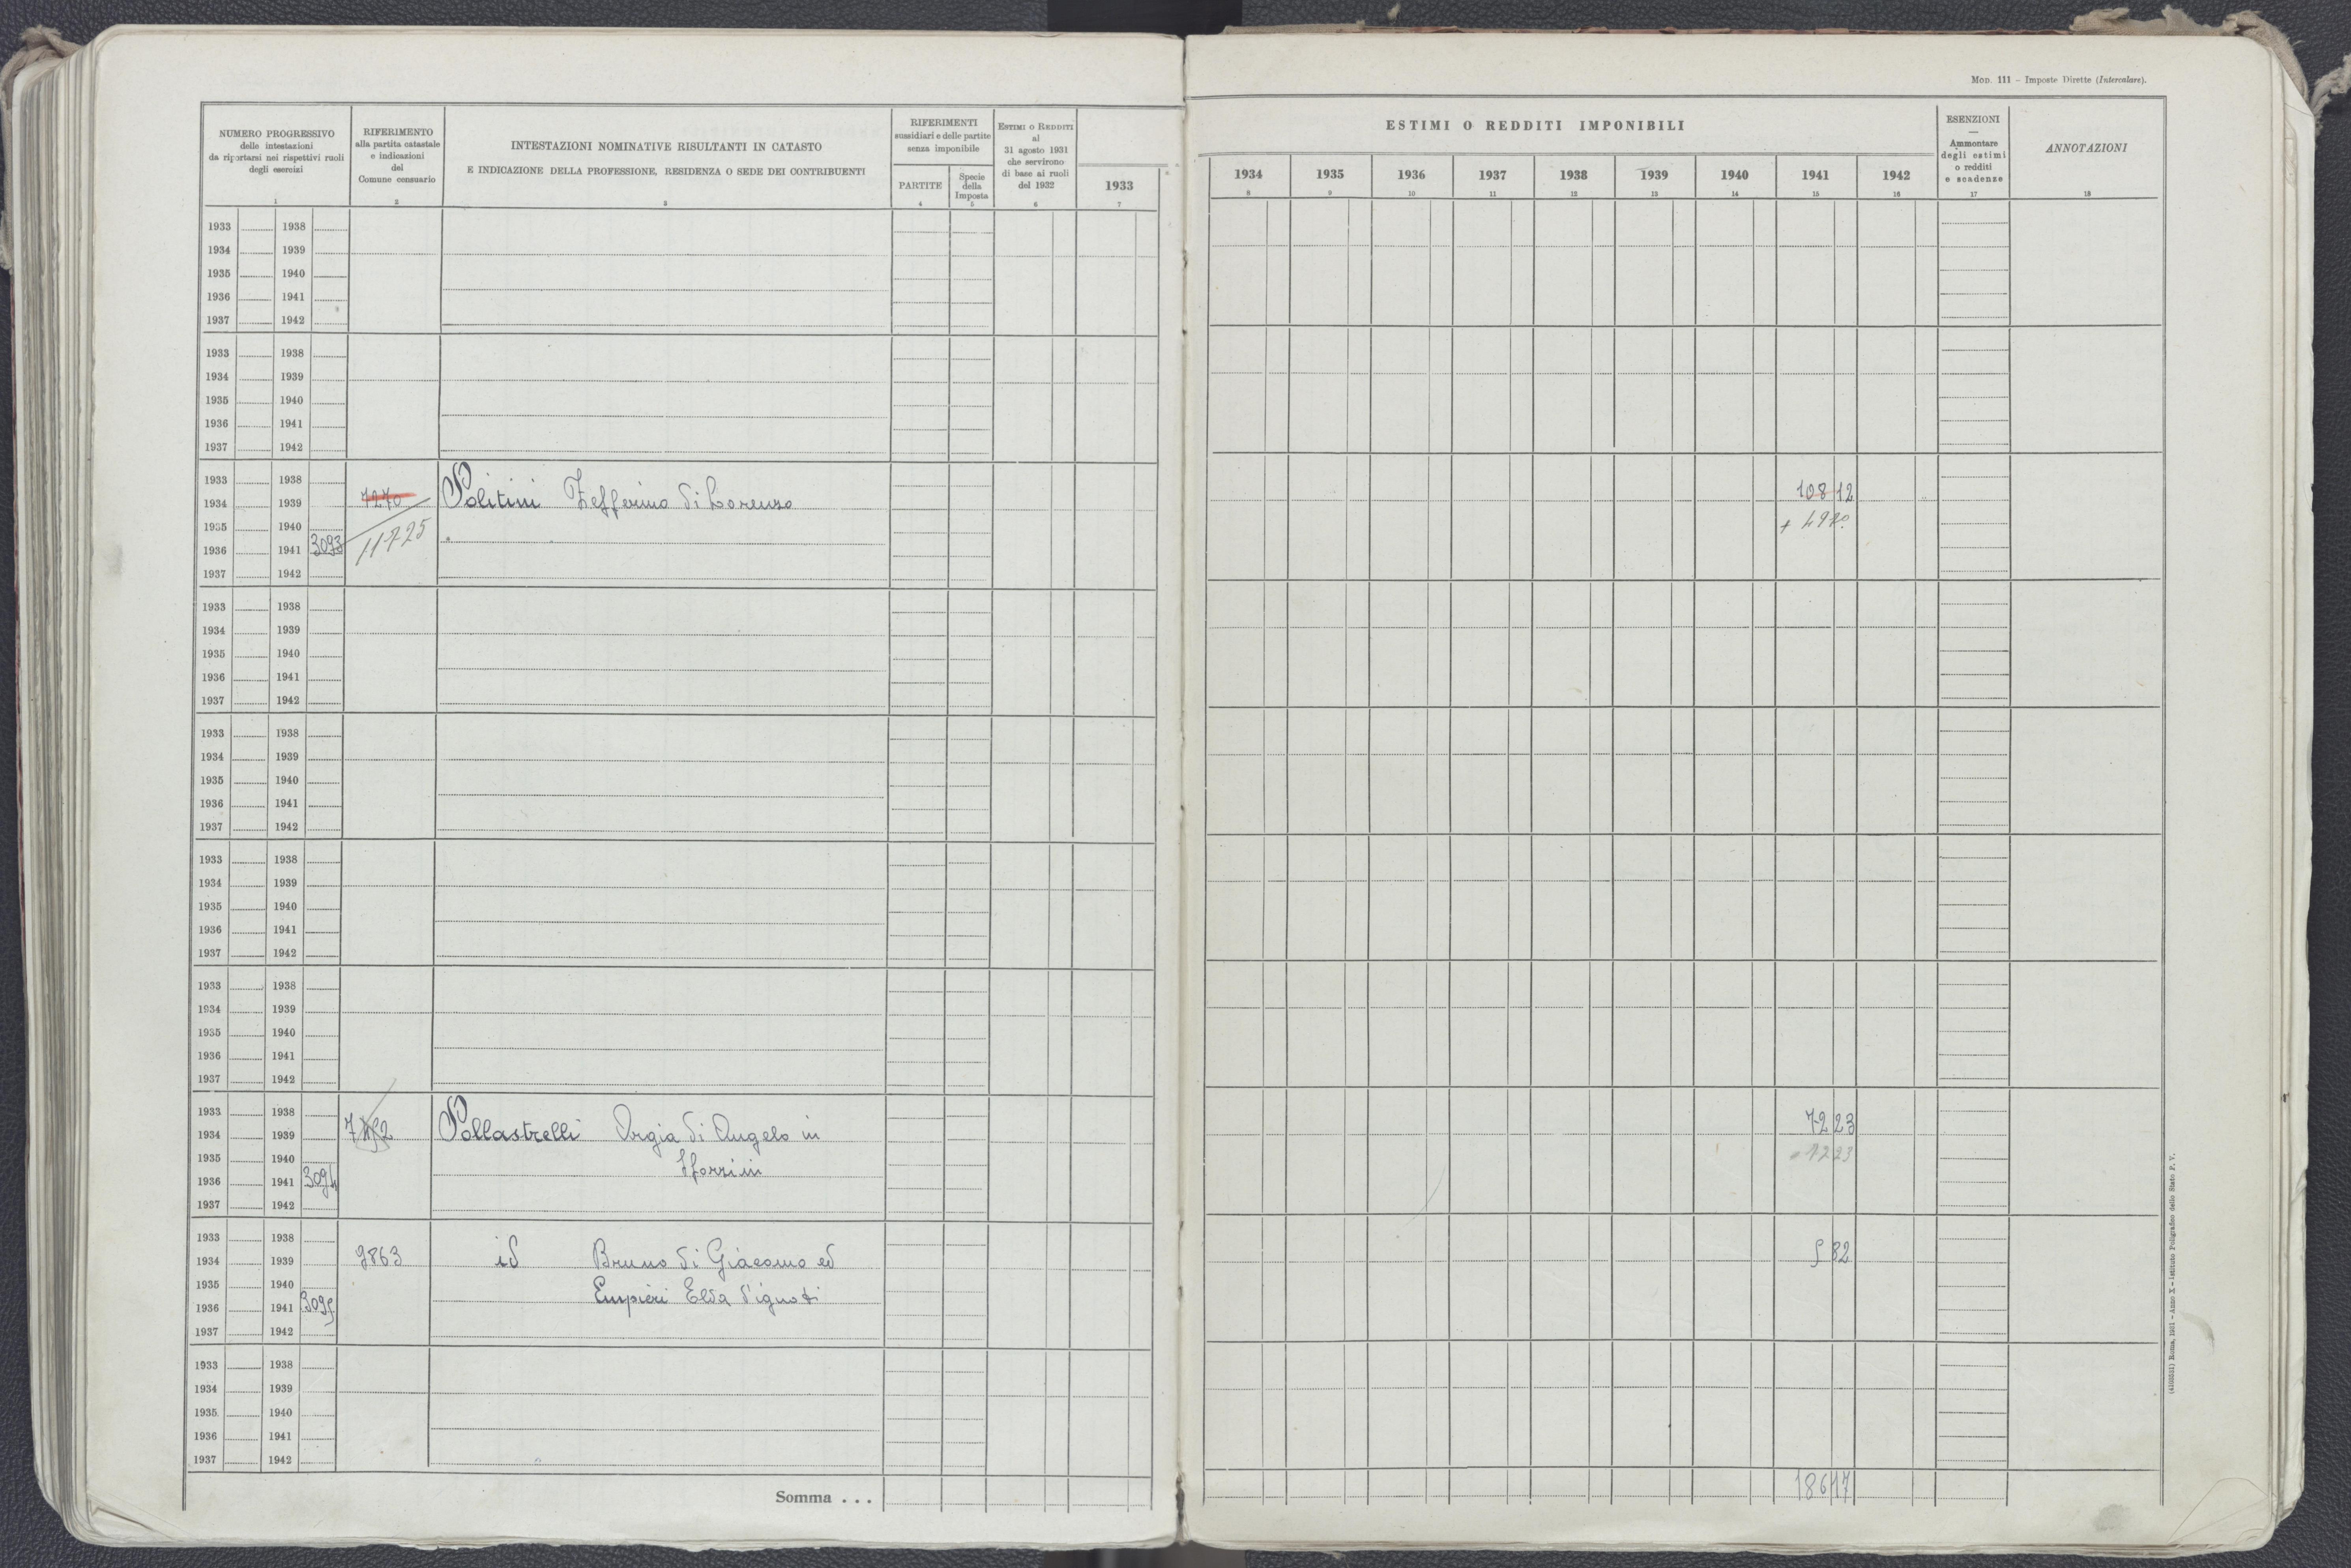 MOD. 111 - Imposte Dirette (Intercalare).
NUMERO PROGRESSIVO
delle intestazioni
da riportarsi nei rispettivi ruoli
degli esercizi
1
RIFERIMENTO
alla partita catastale
e indicazioni
del
Comune censuario
2
INTESTAZIONI NOMINATIVE RISULTANTI IN CATASTO
E INDICAZIONE DELLA PROFESSIONE, RESIDENZA O SEDE DEI CONTRIBUENTI
3
RIFERIMENTI
sussidiari e delle partite
senza imponibile
PARTITE
4
Specie
della
Imposta
5
ESTIMI O REDDITI
al
31 agosto 1931
che servirono
di base ai ruoli
del 1932
6
1933
7
ESTIMI O REDDITI IMPONIBILI
1934 1935 1936 1937 1938 1939 1940 1941 1942
8 9 10 11 12 13 14 15 16
ESENZIONI
—
Ammontare
degli estimi
o redditi
e scadenze
17
ANNOTAZIONI
18
1933 1938
1934 1939
1935 1940
1936 1941
1937 1942
1933 1938
1934 1939
1935 1940
1936 1941
1937 1942
1933 1938
1934 1939 7270 Politini Zefferino di Lorenzo 108 12
1935 1940 + 4970
1936 1941 3093 11725
1937 1942
1933 1938
1934 1939
1935 1940
1936 1941
1937 1942
1933 1938
1934 1939
1935 1940
1936 1941
1937 1942
1933 1938
1934 1939
1935 1940
1936 1941
1937 1942
1933 1938
1934 1939
1935 1940
1936 1941
1937 1942
1933 1938
1934 1939 Pollastrelli Orgia di Angelo in 72 23
1935 1940 Sforzini 72 23
1936 1941 3094
1937 1942
1933 1938
1934 1939 9863 id Bruno di Giacomo ed 5 82
1935 1940 Empieri Elda d'ignoti
1936 1941 3095
1937 1942
1933 1938
1934 1939
1935 1940
1936 1941
1937 1942
Somma . . . 186 17
Roma, 1931 - Anno X - Istituto Poligrafico dello Stato P. V.